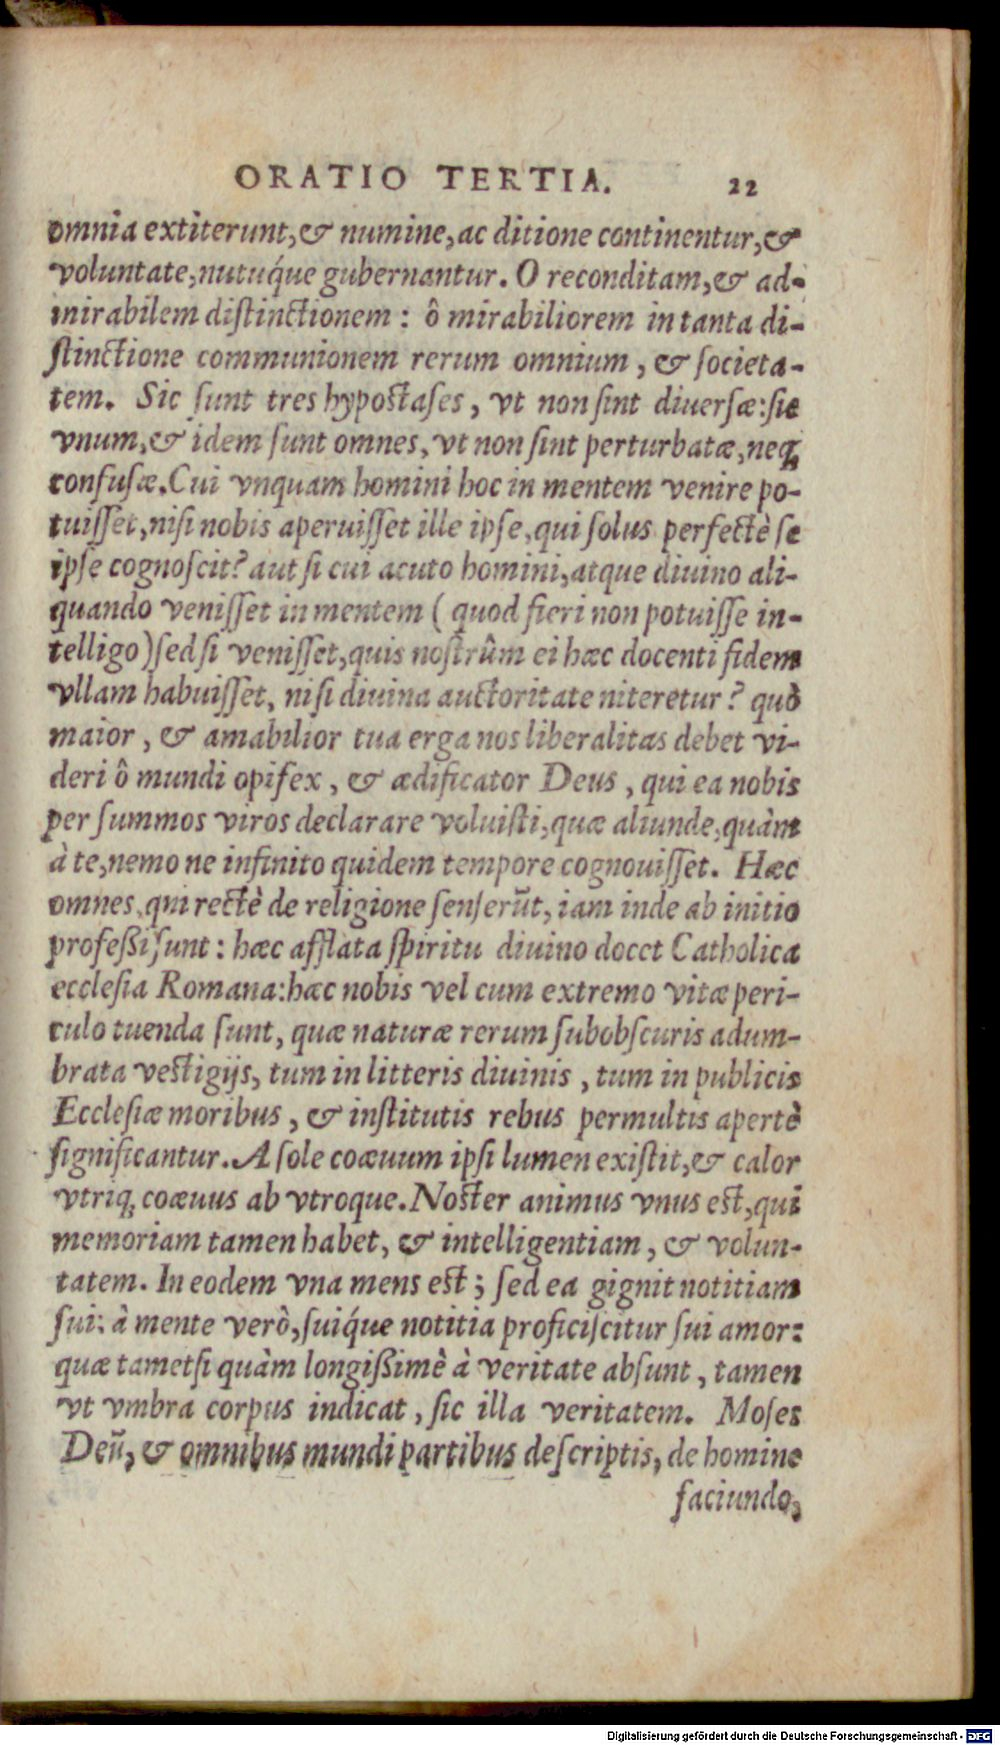 ORATIO TERTIA. 22
omnia extiterunt, & numine, ac ditione continentur, &
voluntate, nutuq́ue gubernantur. O reconditam, & ad-
mirabilem distinctionem: ô mirabiliorem in tanta di-
ſtinctione communionem rerum omnium, & ſocieta-
tem. Sic ſunt tres hypostaſes, vt non ſint diuerſæ: ſic
vnum, & idem ſunt omnes, vt non ſint perturbatæ, neq;
confuſæ. Cui vnquam homini hoc in mentem venire po-
tuiſſet, niſi nobis aperuiſſet ille ipſe, qui ſolus perfectè ſe
ipſe cognoſcit? aut ſi cui acuto homini, atque diuino ali-
quando veniſſet in mentem (quod fieri non potuiſſe in-
telligo) ſed ſi veniſſet, quis noſtrûm ei hæc docenti fidem
vllam habuiſſet, niſi diuina auctoritate niteretur? quò
maior, & amabilior tua erga nos liberalitas debet vi-
deri ô mundi opifex, & ædificator Deus, qui ea nobis
per ſummos viros declarare voluiſti, quæ aliunde, quàm
à te, nemo ne infinito quidem tempore cognouiſſet. Hæc
omnes, qui rectè de religione ſenſerūt, iam inde ab initio
profeßi ſunt: hæc afflata ſpiritu diuino docet Catholica
eccleſia Romana: hæc nobis vel cum extremo vitæ peri-
culo tuenda ſunt, quæ naturæ rerum ſubobſcuris adum-
brata vestigijs, tum in litteris diuinis, tum in publicis
Eccleſiæ moribus, & inſtitutis rebus permultis apertè
ſignificantur. A ſole coæuum ipſi lumen exiſtit, & calor
vtriq; coæuus ab vtroque. Noster animus vnus est, qui
memoriam tamen habet, & intelligentiam, & volun-
tatem. In eodem vna mens est; ſed ea gignit notitiam
ſui: à mente verò, ſuiq́ue notitia proficiſcitur ſui amor:
quæ tametſi quàm longißimè à veritate abſunt, tamen
vt vmbra corpus indicat, ſic illa veritatem. Moſes
Deū, & omnibus mundi partibus deſcriptis, de homine
faciundo,
Digitalisierung gefördert durch die Deutsche Forschungsgemeinschaft - DFG